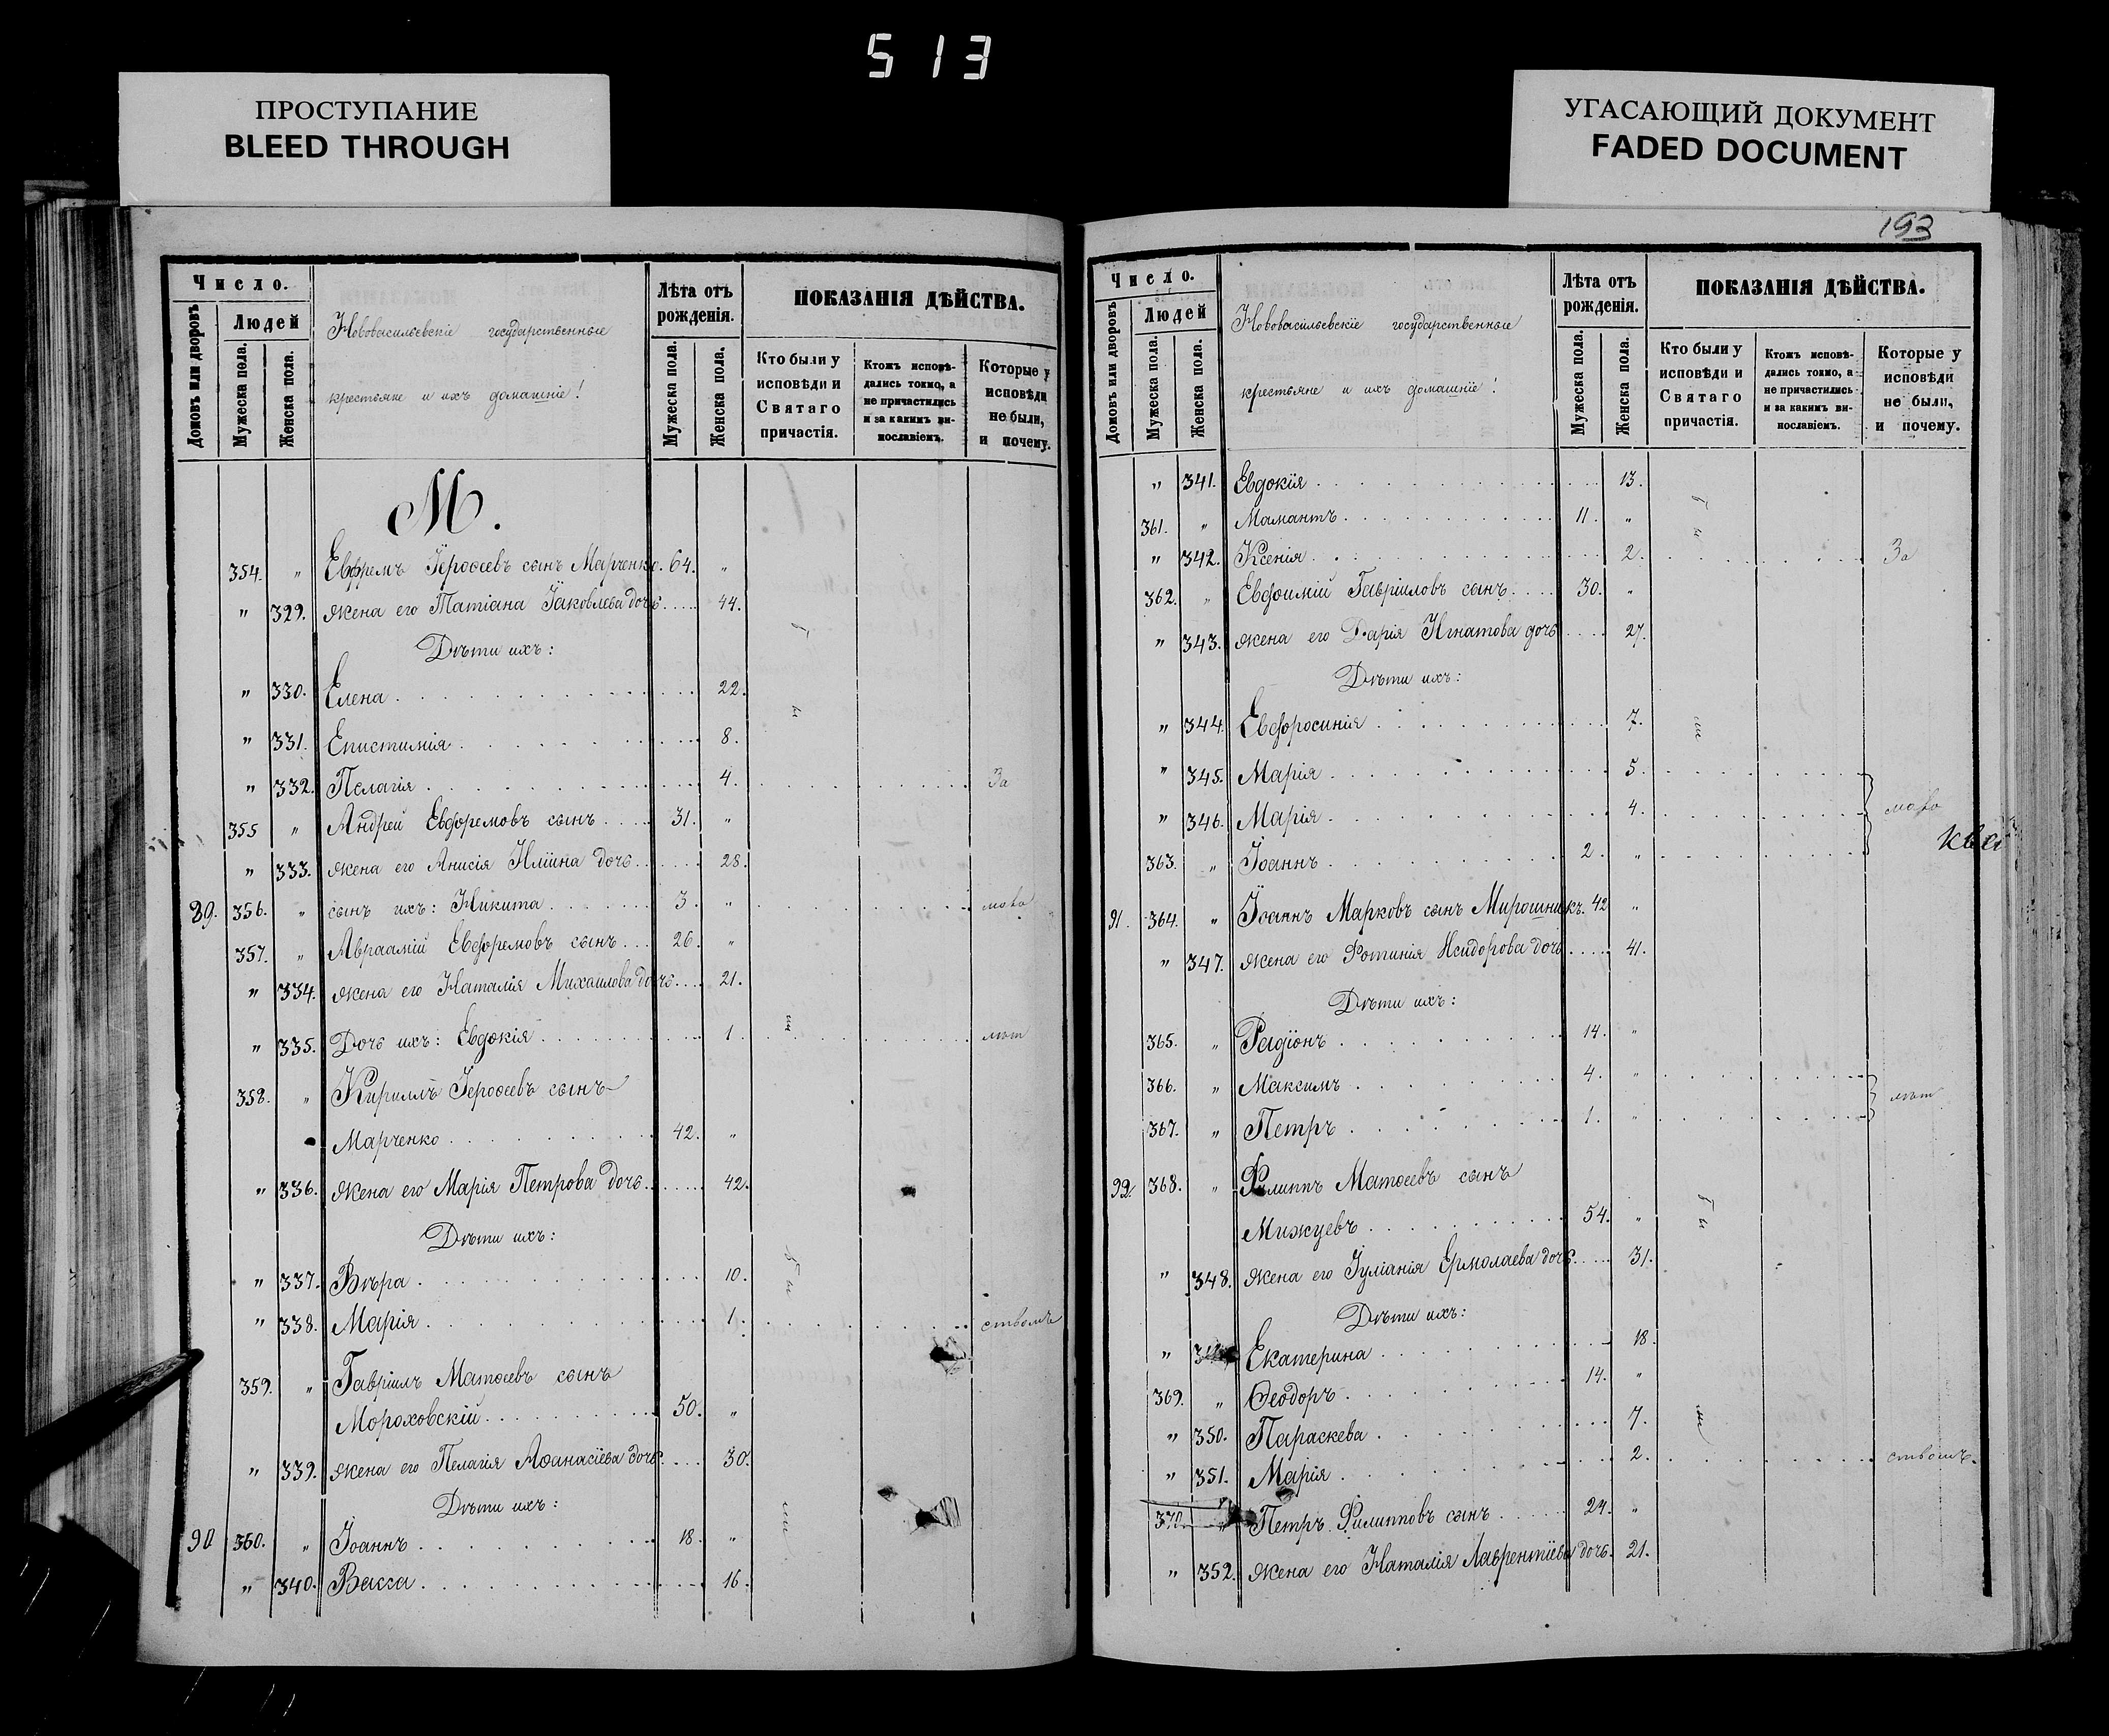 513
ПРОСТУПАНИЕ
BLEED THROUGH
УГАСАЮЩИЙ ДОКУМЕНТ
FADED DOCUMENT
Число.
Домовъ или дворовъ
Людей
Мужеска пола.
Женска пола.
Нововасильевскіе государственные
крестьяне и ихъ домашніе!
Лѣта отъ рожденія.
Мужеска пола.
Женска пола.
ПОКАЗАНІЯ ДѢЙСТВА.
Кто были у исповѣди и Святаго причастія.
Ктожъ исповѣ-дались токмо, а не причастились и за какимъ ви-нославіемъ.
Которые у исповѣди не были, и почему.
М.
354. " Евфремъ Іерофеевъ сынъ Марченко. 64. "
" 329. жена его Татіана Іаковлева дочь 44.
Дѣти ихъ:
" 330. Елена 22.
" 331. Епистимія 8.
" 332. Пелагія 4. За
355 " Андрей Евфремовъ сынъ 31. "
" 333. жена его Анисія Иліина дочь 28.
89. 356. " сынъ ихъ: Никита 3. " мало
357. " Авраамій Евфремовъ сынъ 26. "
" 334. жена его Наталія Михаилова дочь 21.
" 335. Дочь ихъ: Евдокія 1. лѣт
358. " Кириллъ Іерофеевъ сынъ
Марченко 42. "
" 336. жена его Марія Петрова дочь 42.
Дѣти ихъ:
" 337. Вѣра 10.
" 338. Марія 1. ствомъ
359. " Гавріилъ Матѳеевъ сынъ
Мороховскій 50. "
" 339. жена его Пелагія Аѳанасіева дочь 30.
Дѣти ихъ:
90 360. " Іоаннъ 18. "
" 340. Васса 16.
193
Число.
Домовъ или дворовъ
Людей
Мужеска пола.
Женска пола.
Нововасильевскіе государственные
крестьяне и ихъ домашніе!
Лѣта отъ рожденія.
Мужеска пола.
Женска пола.
ПОКАЗАНІЯ ДѢЙСТВА.
Кто были у исповѣди и Святаго причастія.
Ктожъ исповѣ-дались токмо, а не причастились и за какимъ ви-нославіемъ.
Которые у исповѣди не были, и почему.
" 341. Евдокія 13.
361. " Мамантъ 11. "
" 342. Ксенія 2. За
362. " Евфимій Гавріиловъ сынъ 30. "
" 343. жена его Дарія Игнатова дочь 27.
Дѣти ихъ:
" 344. Евфросинія 7.
" 345. Марія 5.
" 346. Марія 4. мало
363. " Іоаннъ 2. "
91. 364. " Іоаннъ Марковъ сынъ Мирошникъ. 42 "
" 347. жена его Фотинія Исидорова дочь 41.
Дѣти ихъ:
365. " Радіонъ 14. "
366. " Максимъ 4. "
лѣт
367. " Петръ 1. "
92. 368. " Филиппъ Матѳеевъ сынъ
Мижуевъ 54. "
" 348. жена его Іуліанія Ермолаева дочь 31.
Дѣти ихъ:
" Екатерина 18.
369. " Ѳеодоръ 14. "
" 350. Параскева 7.
" 351. Марія 2. ствомъ.
370. " Петръ Филипповъ сынъ 24. "
" 352. жена его Наталія Лаврентіева дочь. 21.